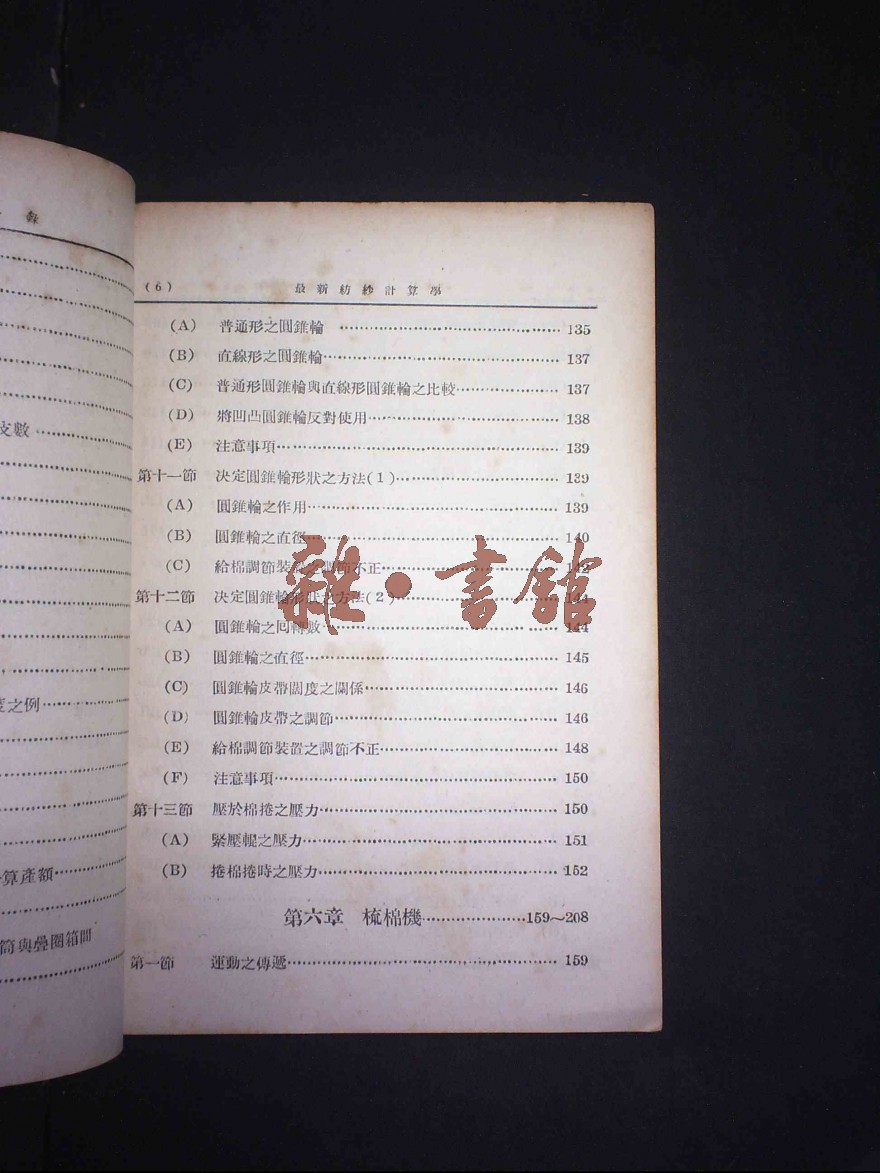 支數
度之例
算產額
筒與疊圈箱間
(6) 最新紡紗計算學
(A) 普通形之圓錐輪 135
(B) 直線形之圓錐輪 137
(C) 普通形圓錐輪與直線形圓錐輪之比較 137
(D) 將凹凸圓錐輪反對使用 138
(E) 注意事項 139
第十一節 决定圓錐輪形狀之方法(1) 139
(A) 圓錐輪之作用 139
(B) 圓錐輪之直徑 140
(C) 給棉調節裝置之調節不正 142
第十二節 决定圓錐輪形狀之方法(2) 144
(A) 圓錐輪之回轉數 144
(B) 圓錐輪之直徑 145
(C) 圓錐輪皮帶闊度之關係 146
(D) 圓錐輪皮帶之調節 146
(E) 給棉調節裝置之調節不正 148
(F) 注意事項 150
第十三節 壓於棉捲之壓力 150
(A) 緊壓輥之壓力 151
(B) 捲棉捲時之壓力 152
第六章 梳棉機 159～208
第一節 運動之傳遞 159
雜·書館